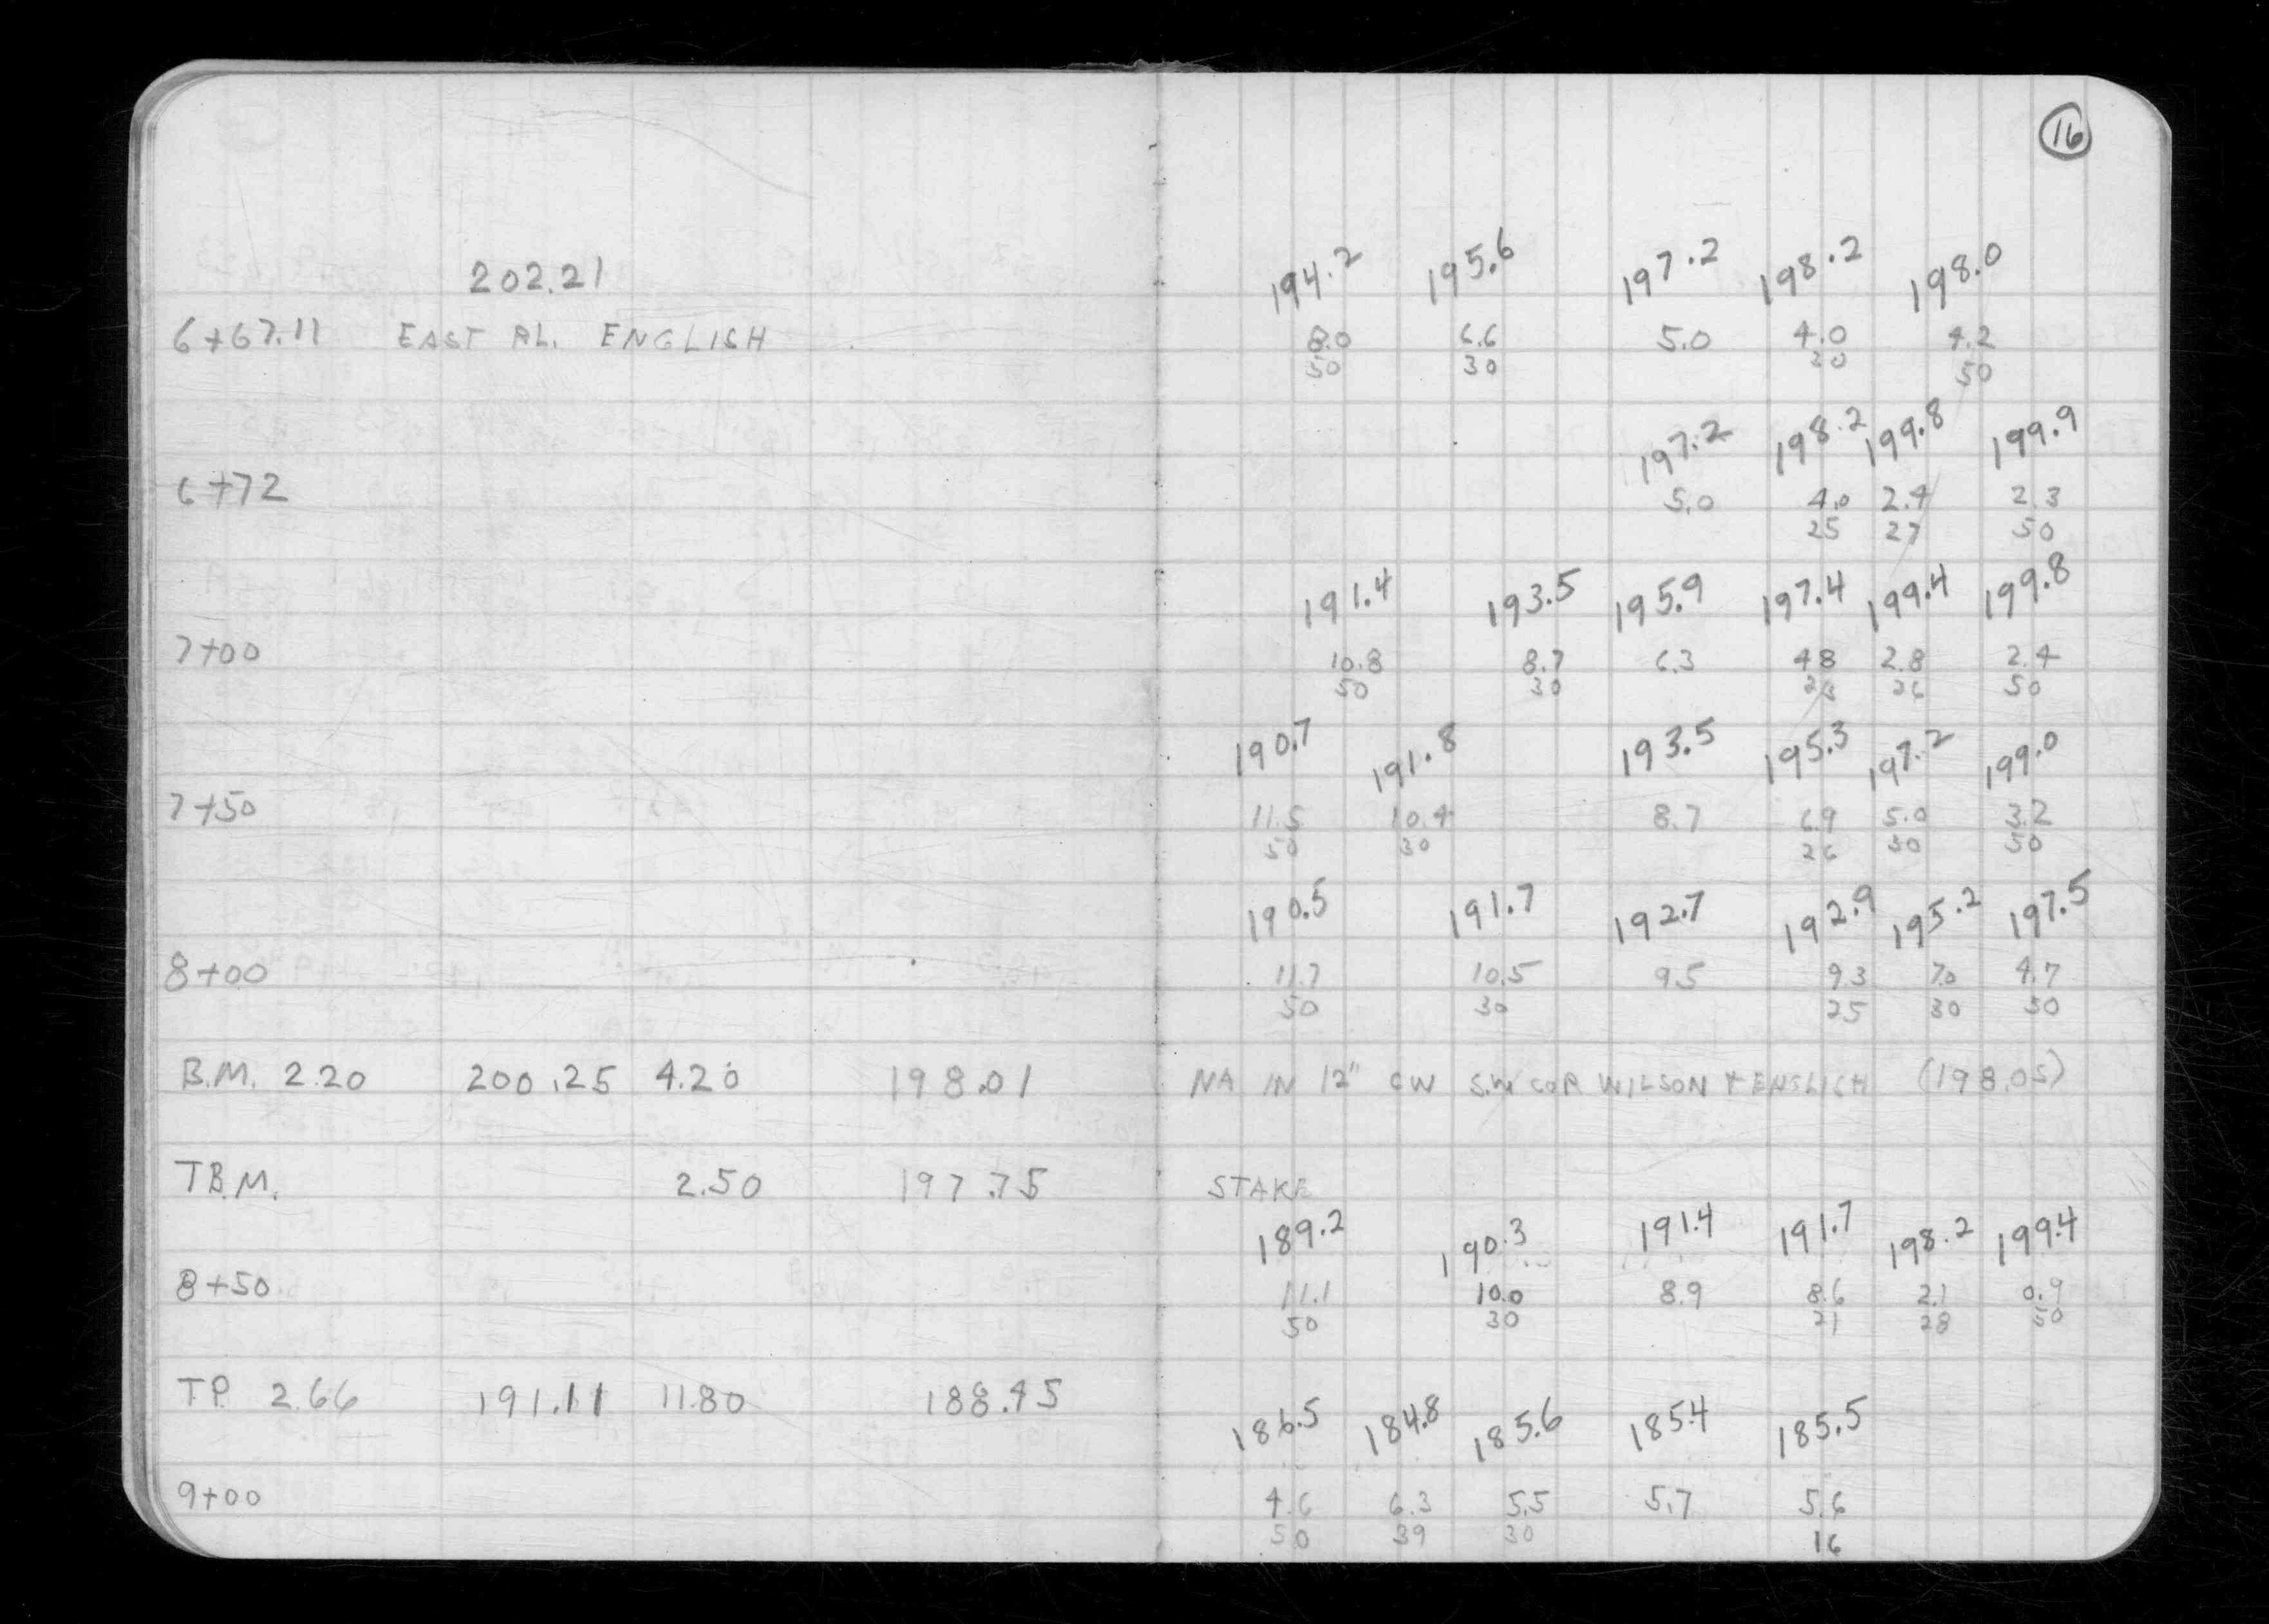 16
202.21 194.2 195.6 197.2 198.2 198.0
6+67.11 EAST PL. ENGLISH 8.0 6.6 5.0 4.0 4.2
50 30 30 50
197.2 198.2 199.8 199.9
6+72 5.0 4.0 2.4 2.3
25 27 50
191.4 193.5 195.9 197.4 199.4 199.8
7+00 10.8 8.7 6.3 4.8 2.8 2.4
50 30 26 50
190.7 191.8 193.5 195.3 197.2 199.0
7+50 11.5 10.4 8.7 6.9 5.0 3.2
50 30 26 30 50
190.5 191.7 192.7 192.9 195.2 197.5
8+00 11.7 10.5 9.5 9.3 7.0 4.7
50 30 25 30 50
B.M. 2.20 200.25 4.20 198.01 NA IN 12" CW S.W COR WILSON + ENGLISH (198.05)
T.B.M. 2.50 197.75 STAKE
189.2 190.3 191.4 191.7 198.2 199.4
8+50 11.1 10.0 8.9 8.6 2.1 0.9
50 30 21 28 50
TP. 2.66 191.11 11.80 188.45
186.5 184.8 185.6 185.4 185.5
9+00 4.6 6.3 5.5 5.7 5.6
50 39 30 16